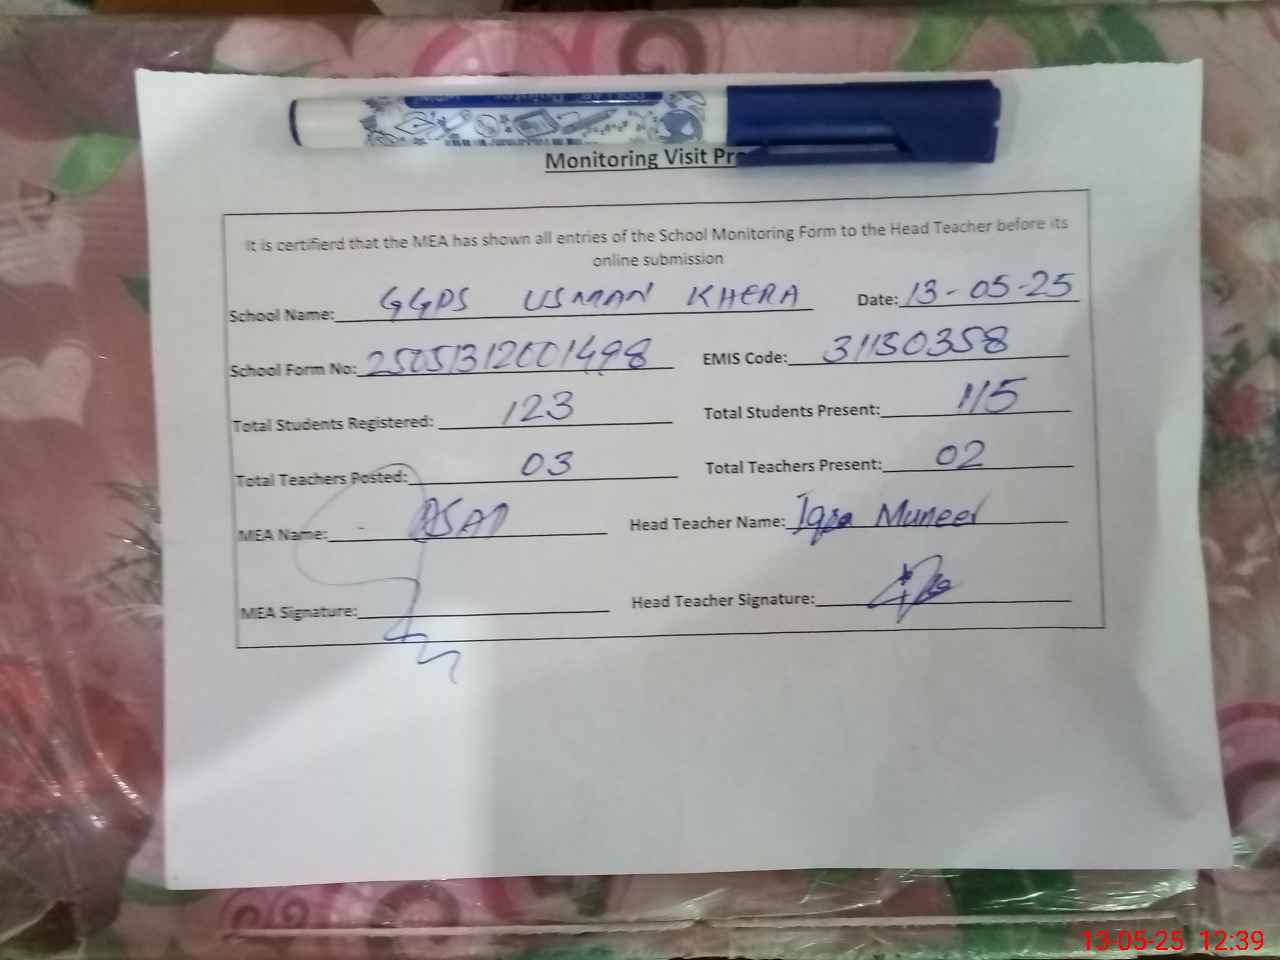 Monitoring Visit
It is certifierd that the MEA has shown all entries of the School Monitoring Form to the Head Teacher before its
online submission
School Name: GGPS USMAN KHERA Date: 13-05-25
School Form No: 25051312001498 EMIS Code: 31130358
Total Students Registered: 123 Total Students Present: 115
Total Teachers Posted: 03 Total Teachers Present: 02
MEA Name: ASAD Head Teacher Name: Iqra Muneer
MEA Signature: Head Teacher Signature:
13-05-25 12:39